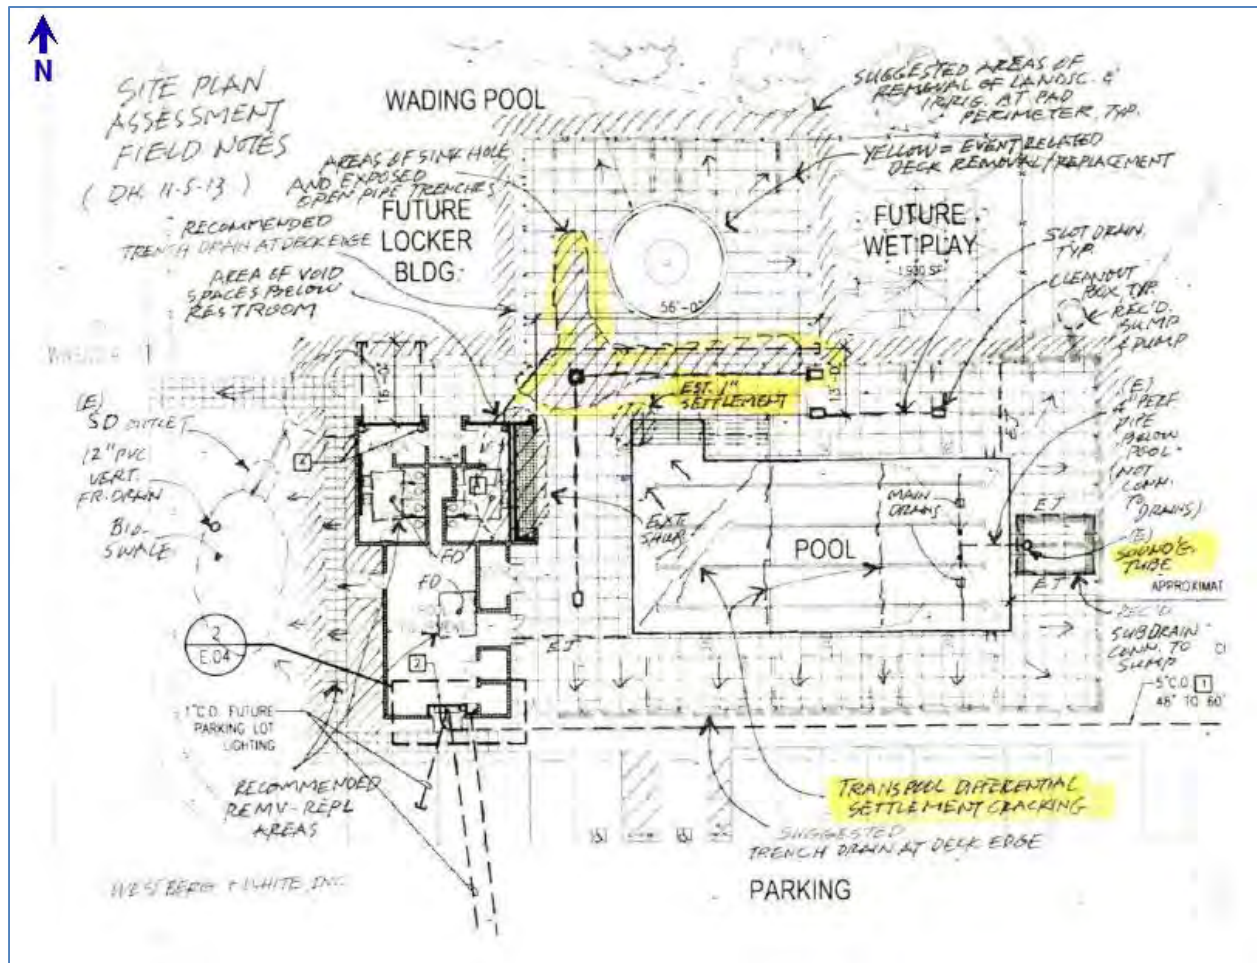 N
SITE PLAN
ASSESSMENT
FIELD NOTES
( DH. 11-5-13 )
WADING POOL
SUGGESTED AREAS OF
REMOVAL OF LANDSC. &
IRRIG. AT PAD
PERIMETER, TYP.
YELLOW = EVENT RELATED
DECK REMOVAL/REPLACEMENT
AREAS OF SINK HOLE
AND EXPOSED
OPEN PIPE TRENCHES
RECOMMENDED
TRENCH DRAIN AT DECK EDGE
FUTURE
LOCKER
BLDG.
AREA OF VOID
SPACES BELOW
RESTROOM
FUTURE
WET PLAY
1,930 SF
SLOT DRAIN,
TYP.
CLEANOUT
BOX TYP.
REC'D.
SUMP
& PUMP
56'-0"
16'-0"
13'-0"
EST. 1"
SETTLEMENT
(E)
SD OUTLET
12" PVC
VERT.
FR. DRAIN
BIO-
SWALE
(E)
4" PERF
PIPE
BELOW
POOL
(NOT
CONN.
TO
DRAINS)
EJ
4
FD
MAIN
DRAINS
POOL
EJ
(E)
SOUND'G.
TUBE
EJ
APPROXIMAT
REC'D
SUBDRAIN
CONN. TO
SUMP
FD
2
E.04
2
EJ
5"C.O. 1
48" TO 60"
1"C.O. FUTURE
PARKING LOT
LIGHTING
RECOMMENDED
REMV-REPL
AREAS
TRANSPOOL DIFFERENTIAL
SETTLEMENT CRACKING
SUGGESTED
TRENCH DRAIN AT DECK EDGE
WESTBERG + WHITE, INC.
PARKING